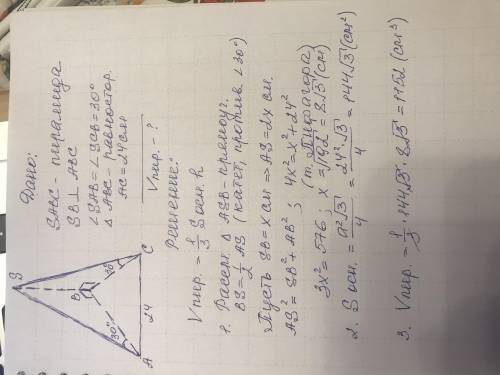 Дано:
SABC - пирамида
SB ⊥ ABC
∠SAB = ∠SCB = 30°
Δ ABC - равностор.
AC = 24 см
Vпир. - ?
S
B
30°
30°
A
24
C
Решение:
Vпир. = 1/3 Sосн. h
1. Рассм. Δ ASB - прямоуг.
BS = 1/2 AS (катет, против ∠30°)
Пусть SB = x см ⇒ AS = 2x см.
AS² = SB² + AB² ; 4x² = x² + 24²
(т. Пифагора)
3x² = 576; x = √192 = 8√3 (см)
2. Sосн. = a²√3/4 = 24²·√3/4 = 144√3 (см²)
3. Vпир. = 1/3 · 144√3 · 8√3 = 1152 (см³)